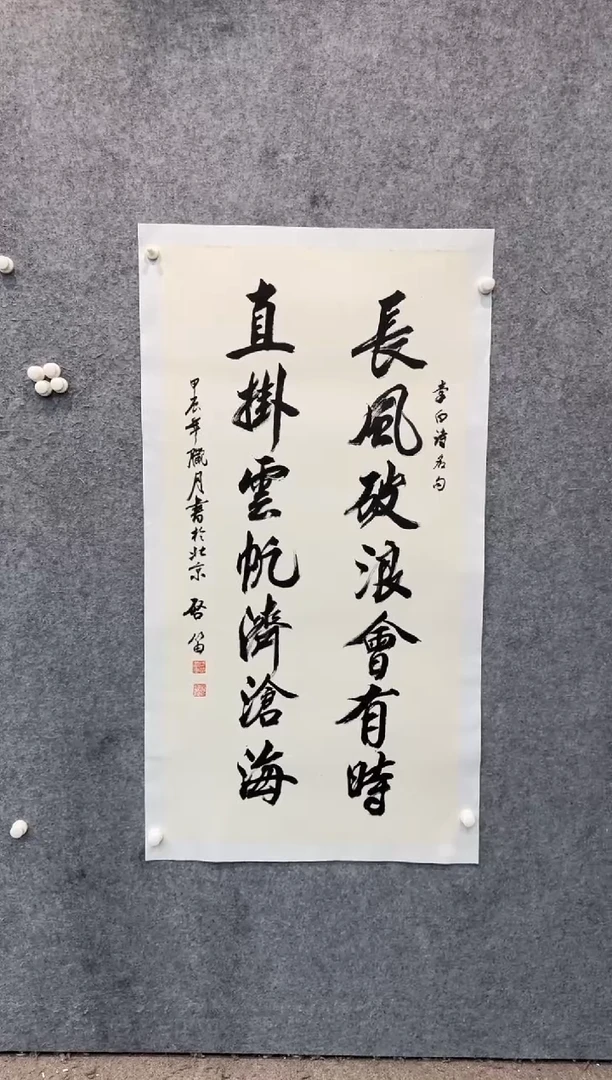 李白诗名句
長風破浪會有時
直掛雲帆濟滄海
甲辰年臘月書於北京 啓笛